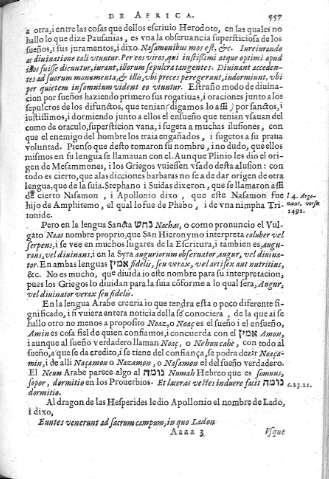 DE AFRICA. 957
a otra, i entre las cosas que dellos escriuio Herodoto, en las quales no
hallo lo que dize Pausanias, es vna la obseruancia supersticiosa de los
sueños, i sus juramentos, i dixo. Nasamonibus mos est, &c. Iureiurando
ac diuinatione tali vtuntur. Per eos viros, qui iustissimi atque optimi apud
illos fuisse dicuntur, iurant, illorum sepulcra tangentes. Diuinant acceden-
tes ad suorum monumenta, & illic, vbi preces peregerunt, indormiunt, vbi
per quietem insomnium vident eo vtuntur. Estraño modo de diuina-
cion por sueños haziendo primero sus rogatiuas, i oraciones junto los
sepulcros de los difuntos, que tenian (digamos lo assi) por santos, i
iustissimos, i dormiendo junto a ellos el ensueño que tenian vsauan del
como de oraculo, supersticion vana, i sugeta a muchas ilusiones, con
que el enemigo del hombre los traia engañados, i sugetos a su praua
voluntad. Pienso que desto tomaron su nombre, i no dudo, que ellos
mismos en su lengua se llamauan con el. Aunque Plinio les dio el ori-
gen de Mesammones, i los Griegos vuiessen vsado desta alusion: con
todo es cierto, que alas dicciones barbaras no se a de dar origen de otra
lengua, que de la suia. Stephano i Suidas dixeron, que se llamaron assi
de cierto Nasamon, i Apollonio dixo, que este Nasamon fue
hijo de Amphitemo, el qual lo fue de Phebo, i de vna nimpha Tri-
tonide.
l 4. Argo-
naut. versu
1491.
Pero en la lengua Santa נחש Nachas, o como pronuncio el Vul-
gato Naas nombre proprio, que San Hieronymo interpreta coluber vel
serpens, i se vee en muchos lugares de la Escritura, i tambien es, augu-
rans, vel diuinans, i en la Syra auguriorum obseruator augur, vel diuina-
tor. En ambas lenguas אמין fidelis, seu verax, vel artifex aut nutritius,
&c. No es mucho, que diuida io este nombre para su interpretacion,
pues los Griegos lo diuidan para la suia coforme a lo qual sera, Augur,
vel diuinator verax seu fidelis.
En la lengua Arabe creeria io que tendra esta o poco diferente si-
gnificado, i si vuiera entera noticia della se conociera, de la que ai se
hallo otro no menos a proposito Noaz, o Noaç es el sueño i el ensueño,
Amin es cosa fiel de quien confiamos, i concuerda con el אמין Amon,
i aunque al sueño verdadero llaman Noaç, o Nebuzabe, con todo al
sueño, a que se da credito, i se tiene del confiança, se podra dezir Noaça-
min, i de alli Naçamon o Nazamon, o Nasamon el del sueño verdadero.
El Neum Arabe parece algo al נומה Numah Hebreo que es somnus,
sopor, dormitio en los Prouerbios. Et laceras vestes induere facit נומה
dormitio.
c. 23. 21.
Al dragon de las Hesperides le dio Apollonio el nombre de Lado,
i dixo,
Euntes venerunt ad sacrum campum, in quo Ladon
Aaaa 3 Vsque